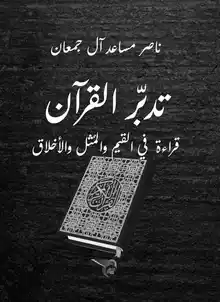 ناصر مساعد آل جمعان
تدبّر القرآن
قراءة في القيم والمثل والأخلاق